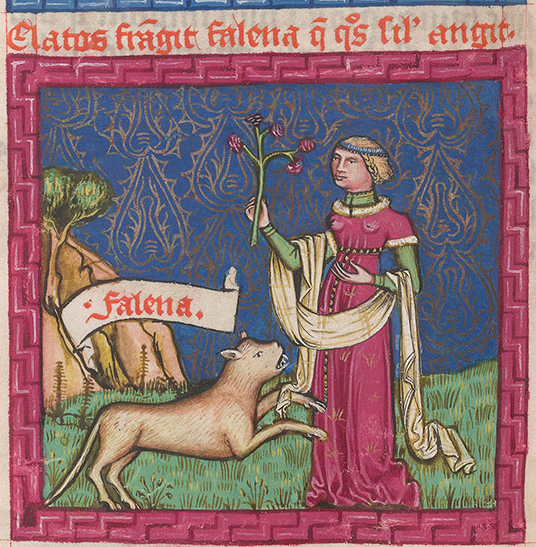 Elatos frãgit falena q̃ q̃s sil' angit.
·falena.